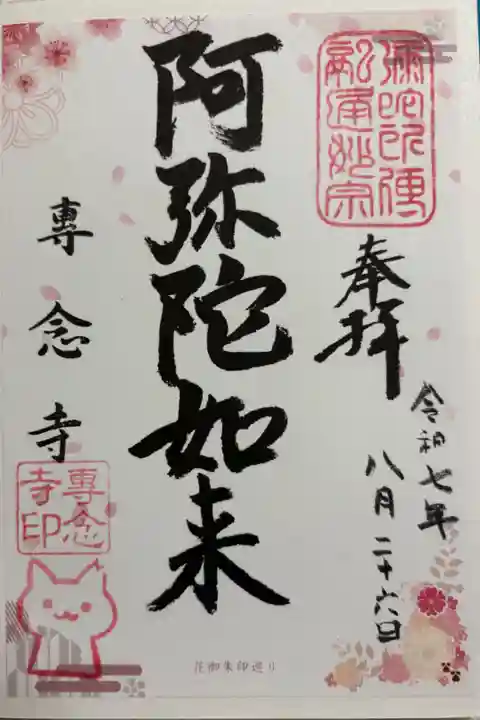 奉拝
令和七年
八月二十六日
阿弥陀如来
專念寺
專念
寺印
花御朱印巡り